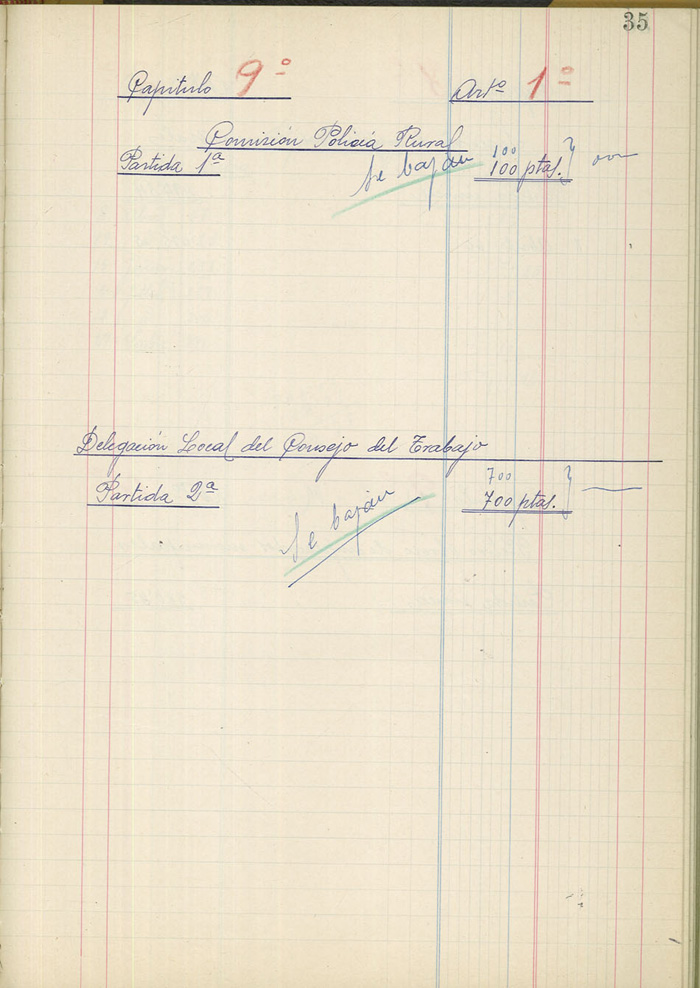 35
Capitulo 9º Artº 1º
Comisión Policía Rural
Partida 1ª Se bajan 100
100 ptas.
Delegación Local del Consejo del Trabajo
Partida 2ª 700
700 ptas.
Se bajan